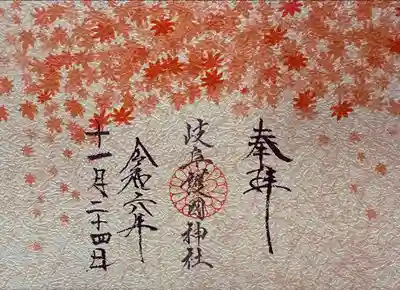 奉拝
岐阜護國神社
令和六年
十一月二十四日